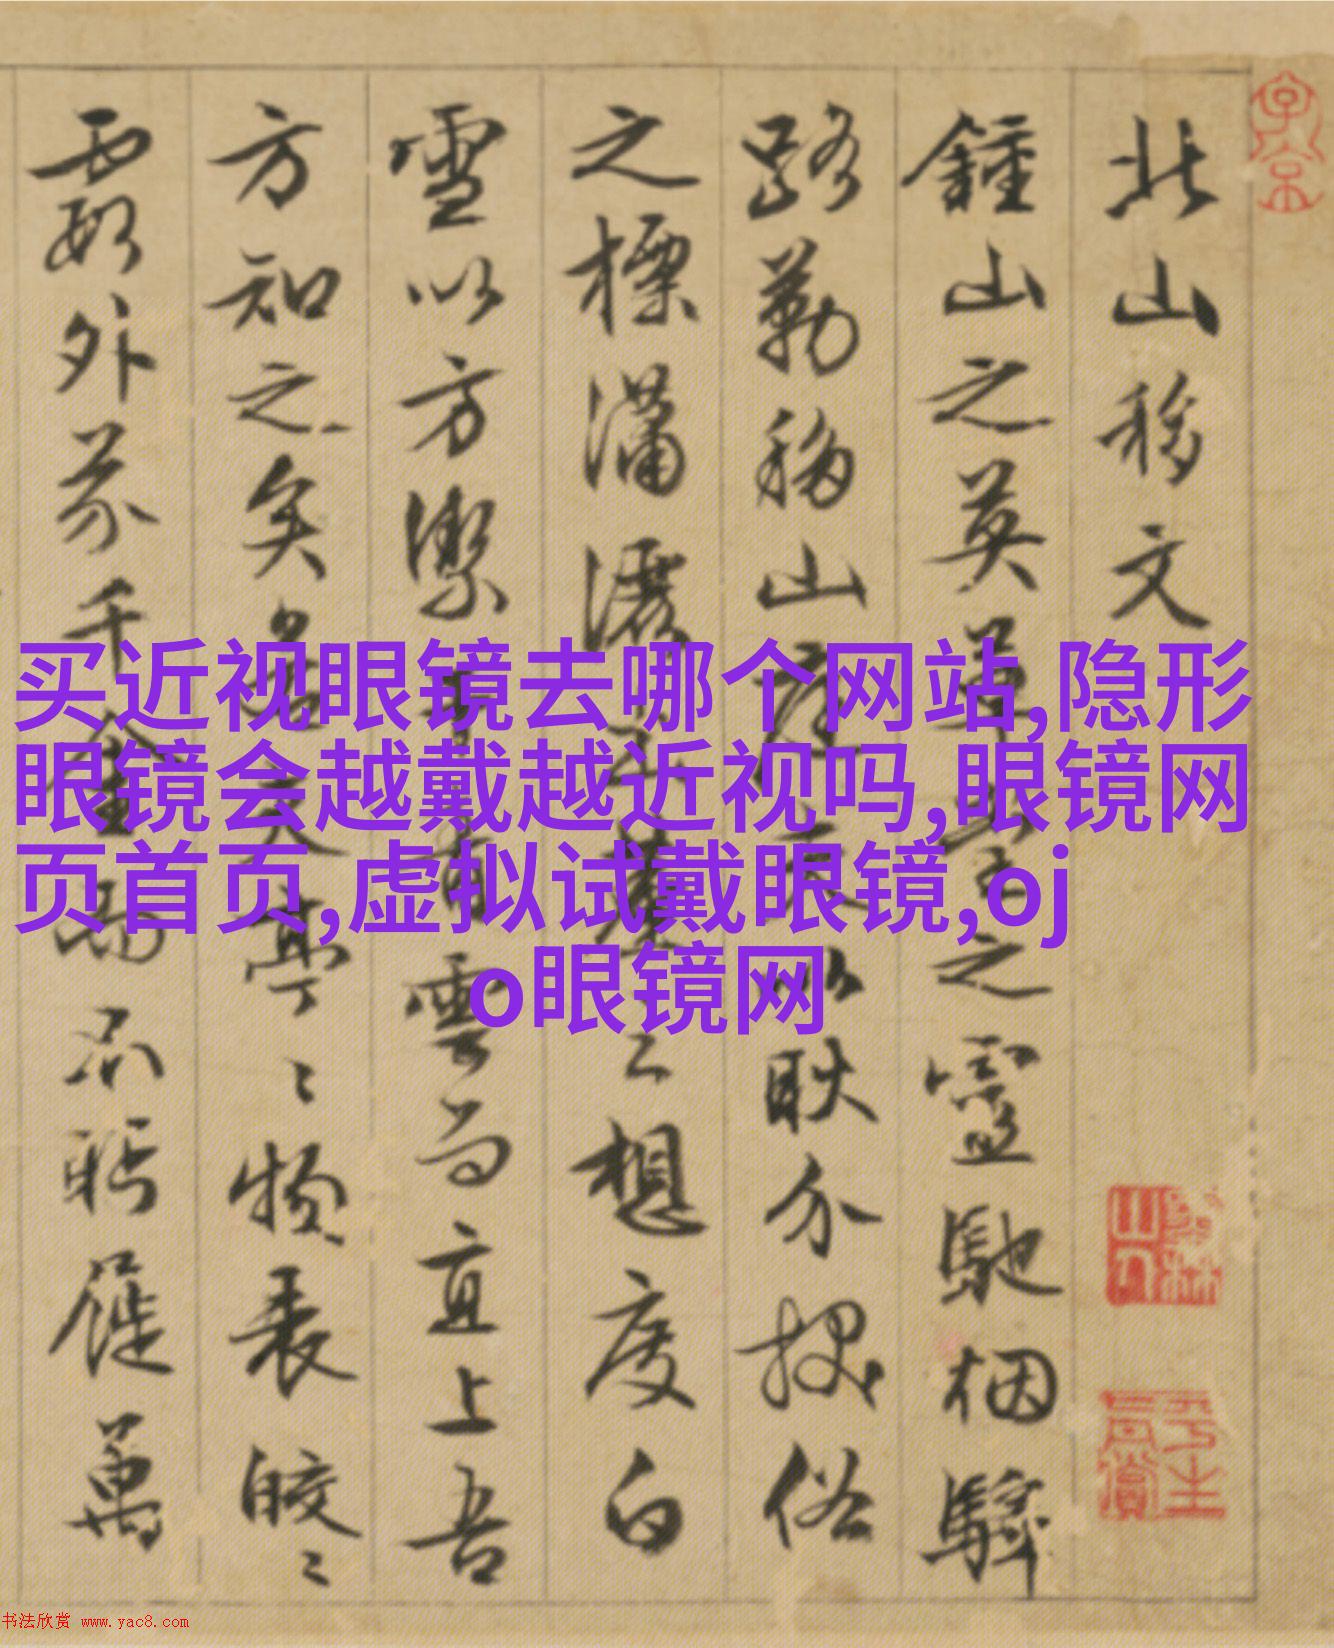 北山移文
鍾山之英草堂之靈馳烟驛
路勒移山庭夫以耿介拔俗
之標瀟灑出塵之想度白
雪以方潔干青雲而直上吾
方知之矣若其亭〻物表皎〻
霞外芥千金而不眄屣萬
买近视眼镜去哪个网站,隐形
眼镜会越戴越近视吗,眼镜网
页首页,虚拟试戴眼镜,oj
o眼镜网
书法欣赏 www.yac8.com